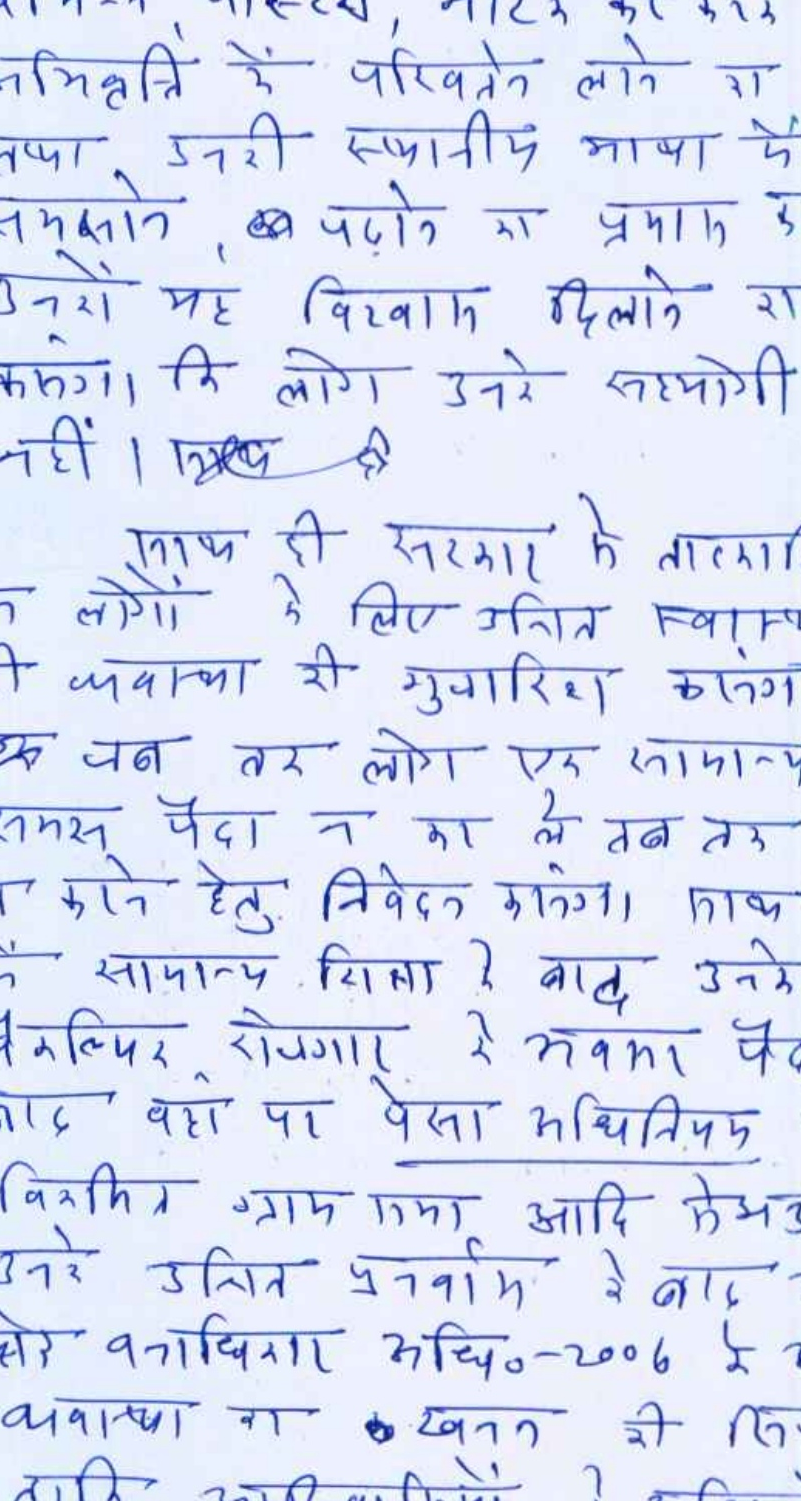 परिवर्तन लाने का
तथा उनकी स्थानीय भाषा में
समझाने, पढ़ाने का प्रयास
उनको यह विश्वास दिलाने का
करूंगा कि लोग उनके सहयोगी
नहीं ।
साथ ही सरकार से
लोगों के लिए उचित
व्यवस्था की गुजारिश करूंगा
जब तक लोग एक सामान्य
समझ पैदा न कर ले तब तक
करने हेतु निवेदन करूंगा। साथ
सामान्य शिक्षा के बाद उनके
वैकल्पिक रोजगार के अवसर
बाद वहां पर पेसा अधिनियम
विकसित ग्राम सभा आदि
उनके उचित पुनर्वास के बाद
वनाधिकार अधि०-2006 के
व्यवस्था का खनन की